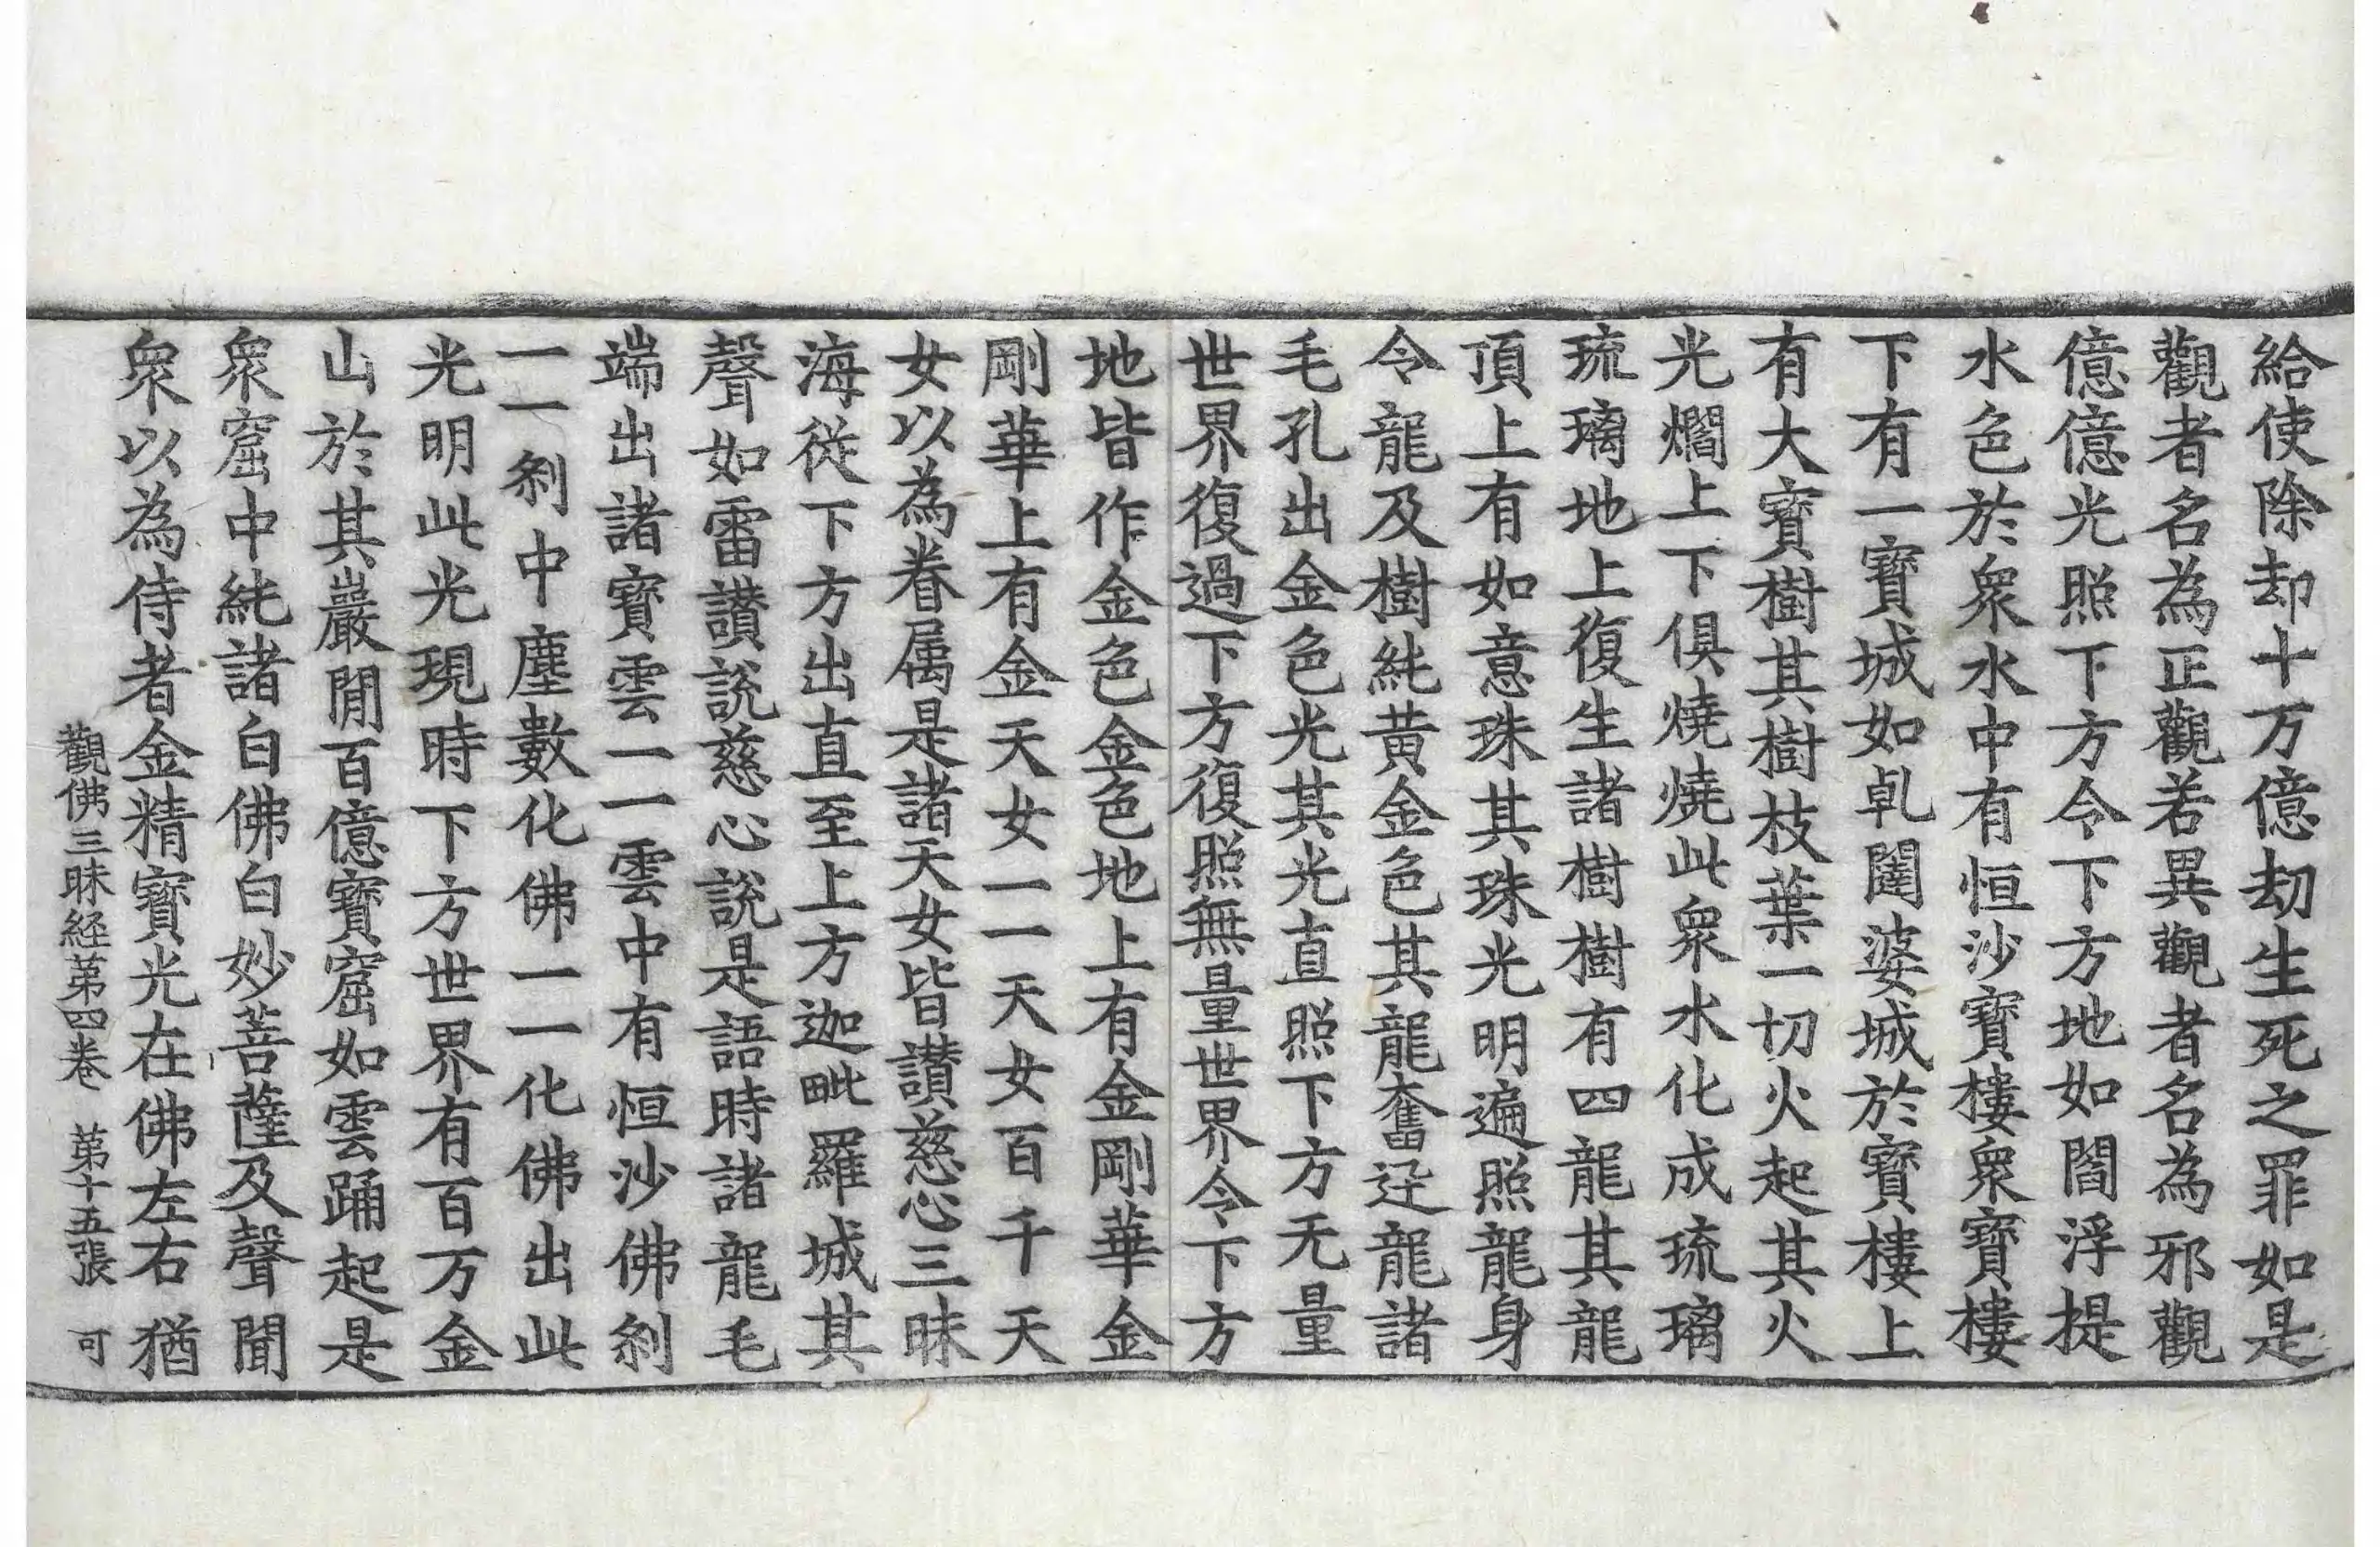 給使除却十万億劫生死之罪如是
觀者名為正觀若異觀者名為邪觀
億億光照下方令下方地如閻浮提
水色於衆水中有恒沙寶樓衆寶樓
下有一寶城如乹闥婆城於寶樓上
有大寶樹其樹枝葉一切火起其火
光爓上下俱燒燒此衆水化成琉璃
琉璃地上復生諸樹樹有四龍其龍
頂上有如意珠其珠光明遍照龍身
令龍及樹純黄金色其龍奮迅龍諸
毛孔出金色光其光直照下方无量
世界復過下方復照無量世界令下方
地皆作金色金色地上有金剛華金
剛華上有金天女一一天女百千天
女以為眷属是諸天女皆讃慈心三昧
海従下方出直至上方迦毗羅城其
聲如雷讃説慈心説是語時諸龍毛
端出諸寶雲一一雲中有恒沙佛刹
一一刹中塵數化佛一一化佛出此
光明此光現時下方世界有百万金
山於其巖閒百億寶窟如雲踊起是
衆窟中純諸白佛白妙菩薩及聲聞
衆以為侍者金精寶光在佛左右猶
觀佛三昧経第四卷 第十五張 可